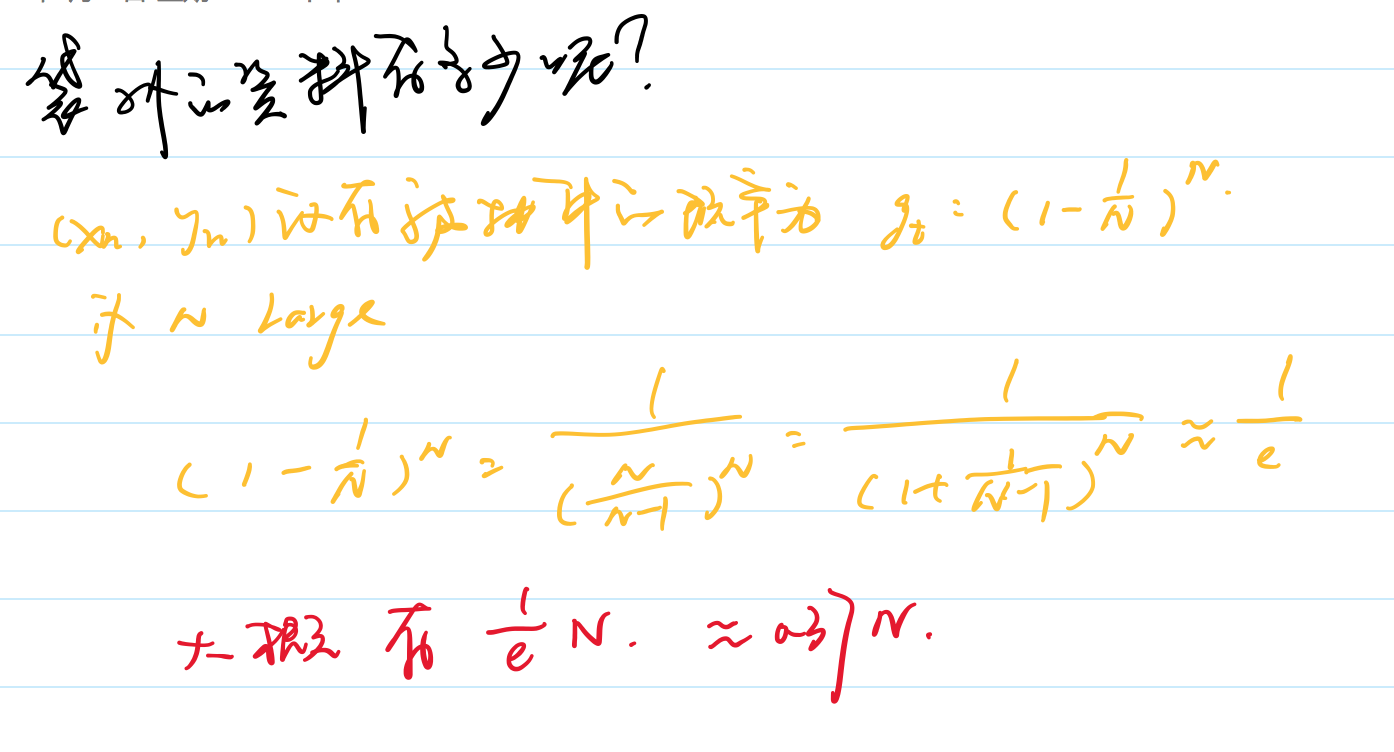 袋外的资料有多少呢?
(xn, yn) 没有被抽中的概率为 gt : (1 - 1/N)^N.
if N Large
(1 - 1/N)^N = 1/(N/(N-1))^N = 1/(1 + 1/(N-1))^N ≈ 1/e
大概 有 1/e N. ≈ 0.37 N.